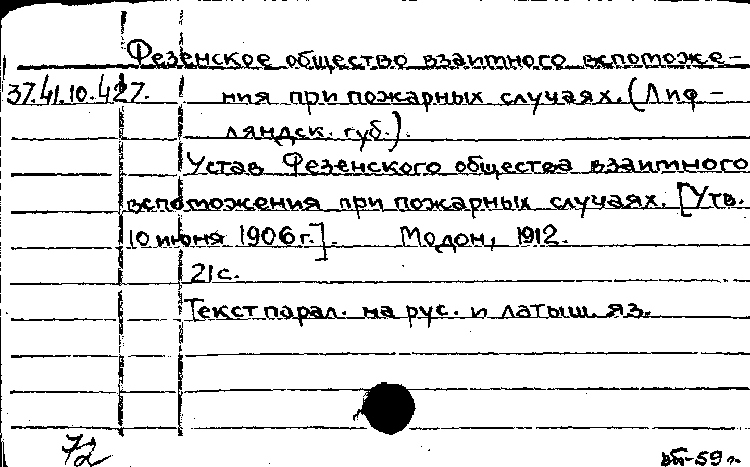 Фезенское общество взаимного вспоможе-
37.41.10.427. ния при пожарных случаях. (Лиф-
ляндск. губ.).
Устав Фезенского общества взаимного
вспоможения при пожарных случаях. [Утв.
10 июня 1906 г.]. Модон, 1912.
21 с.
Текст парал. на рус. и латыш. яз.
72